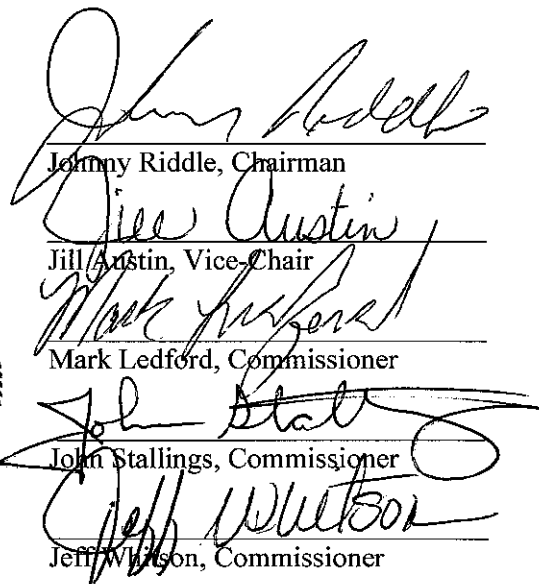 Johnny Riddle
Johnny Riddle, Chairman
Jill Austin
Jill Austin, Vice-Chair
Mark Ledford
Mark Ledford, Commissioner
John Stall
John Stallings, Commissioner
Jeff Whitson
Jeff Whitson, Commissioner